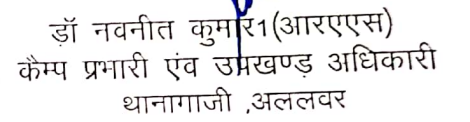 डॉ नवनीत कुमार1(आरएएस)
कैम्प प्रभारी एंव उपखण्ड अधिकारी
थानागाजी ,अललवर